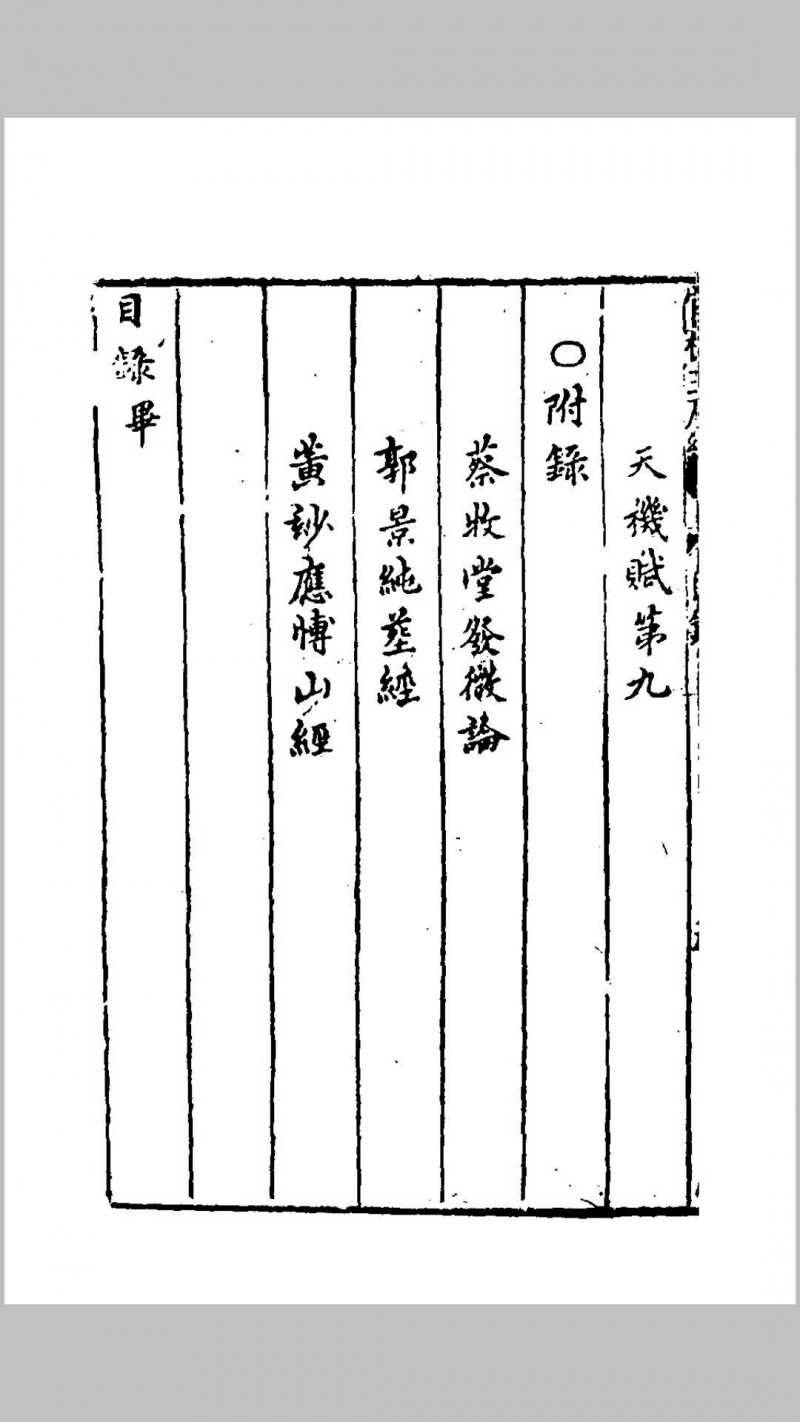 天機賦第九
〇附錄
蔡牧堂發微論
郭景純塟經
黃玅應博山經
目錄畢